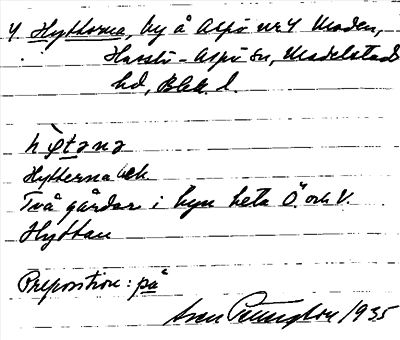 4 Hyttorna, by å Aspö nr 4 Moden,
Hasslö-Aspö sn, Medelstad
hd, Blek. l.
hy̆tәnә
Hytterna
Två gårdar i byn heta Ö. och V.
Hyttan
Preposition: på
Sven 1935